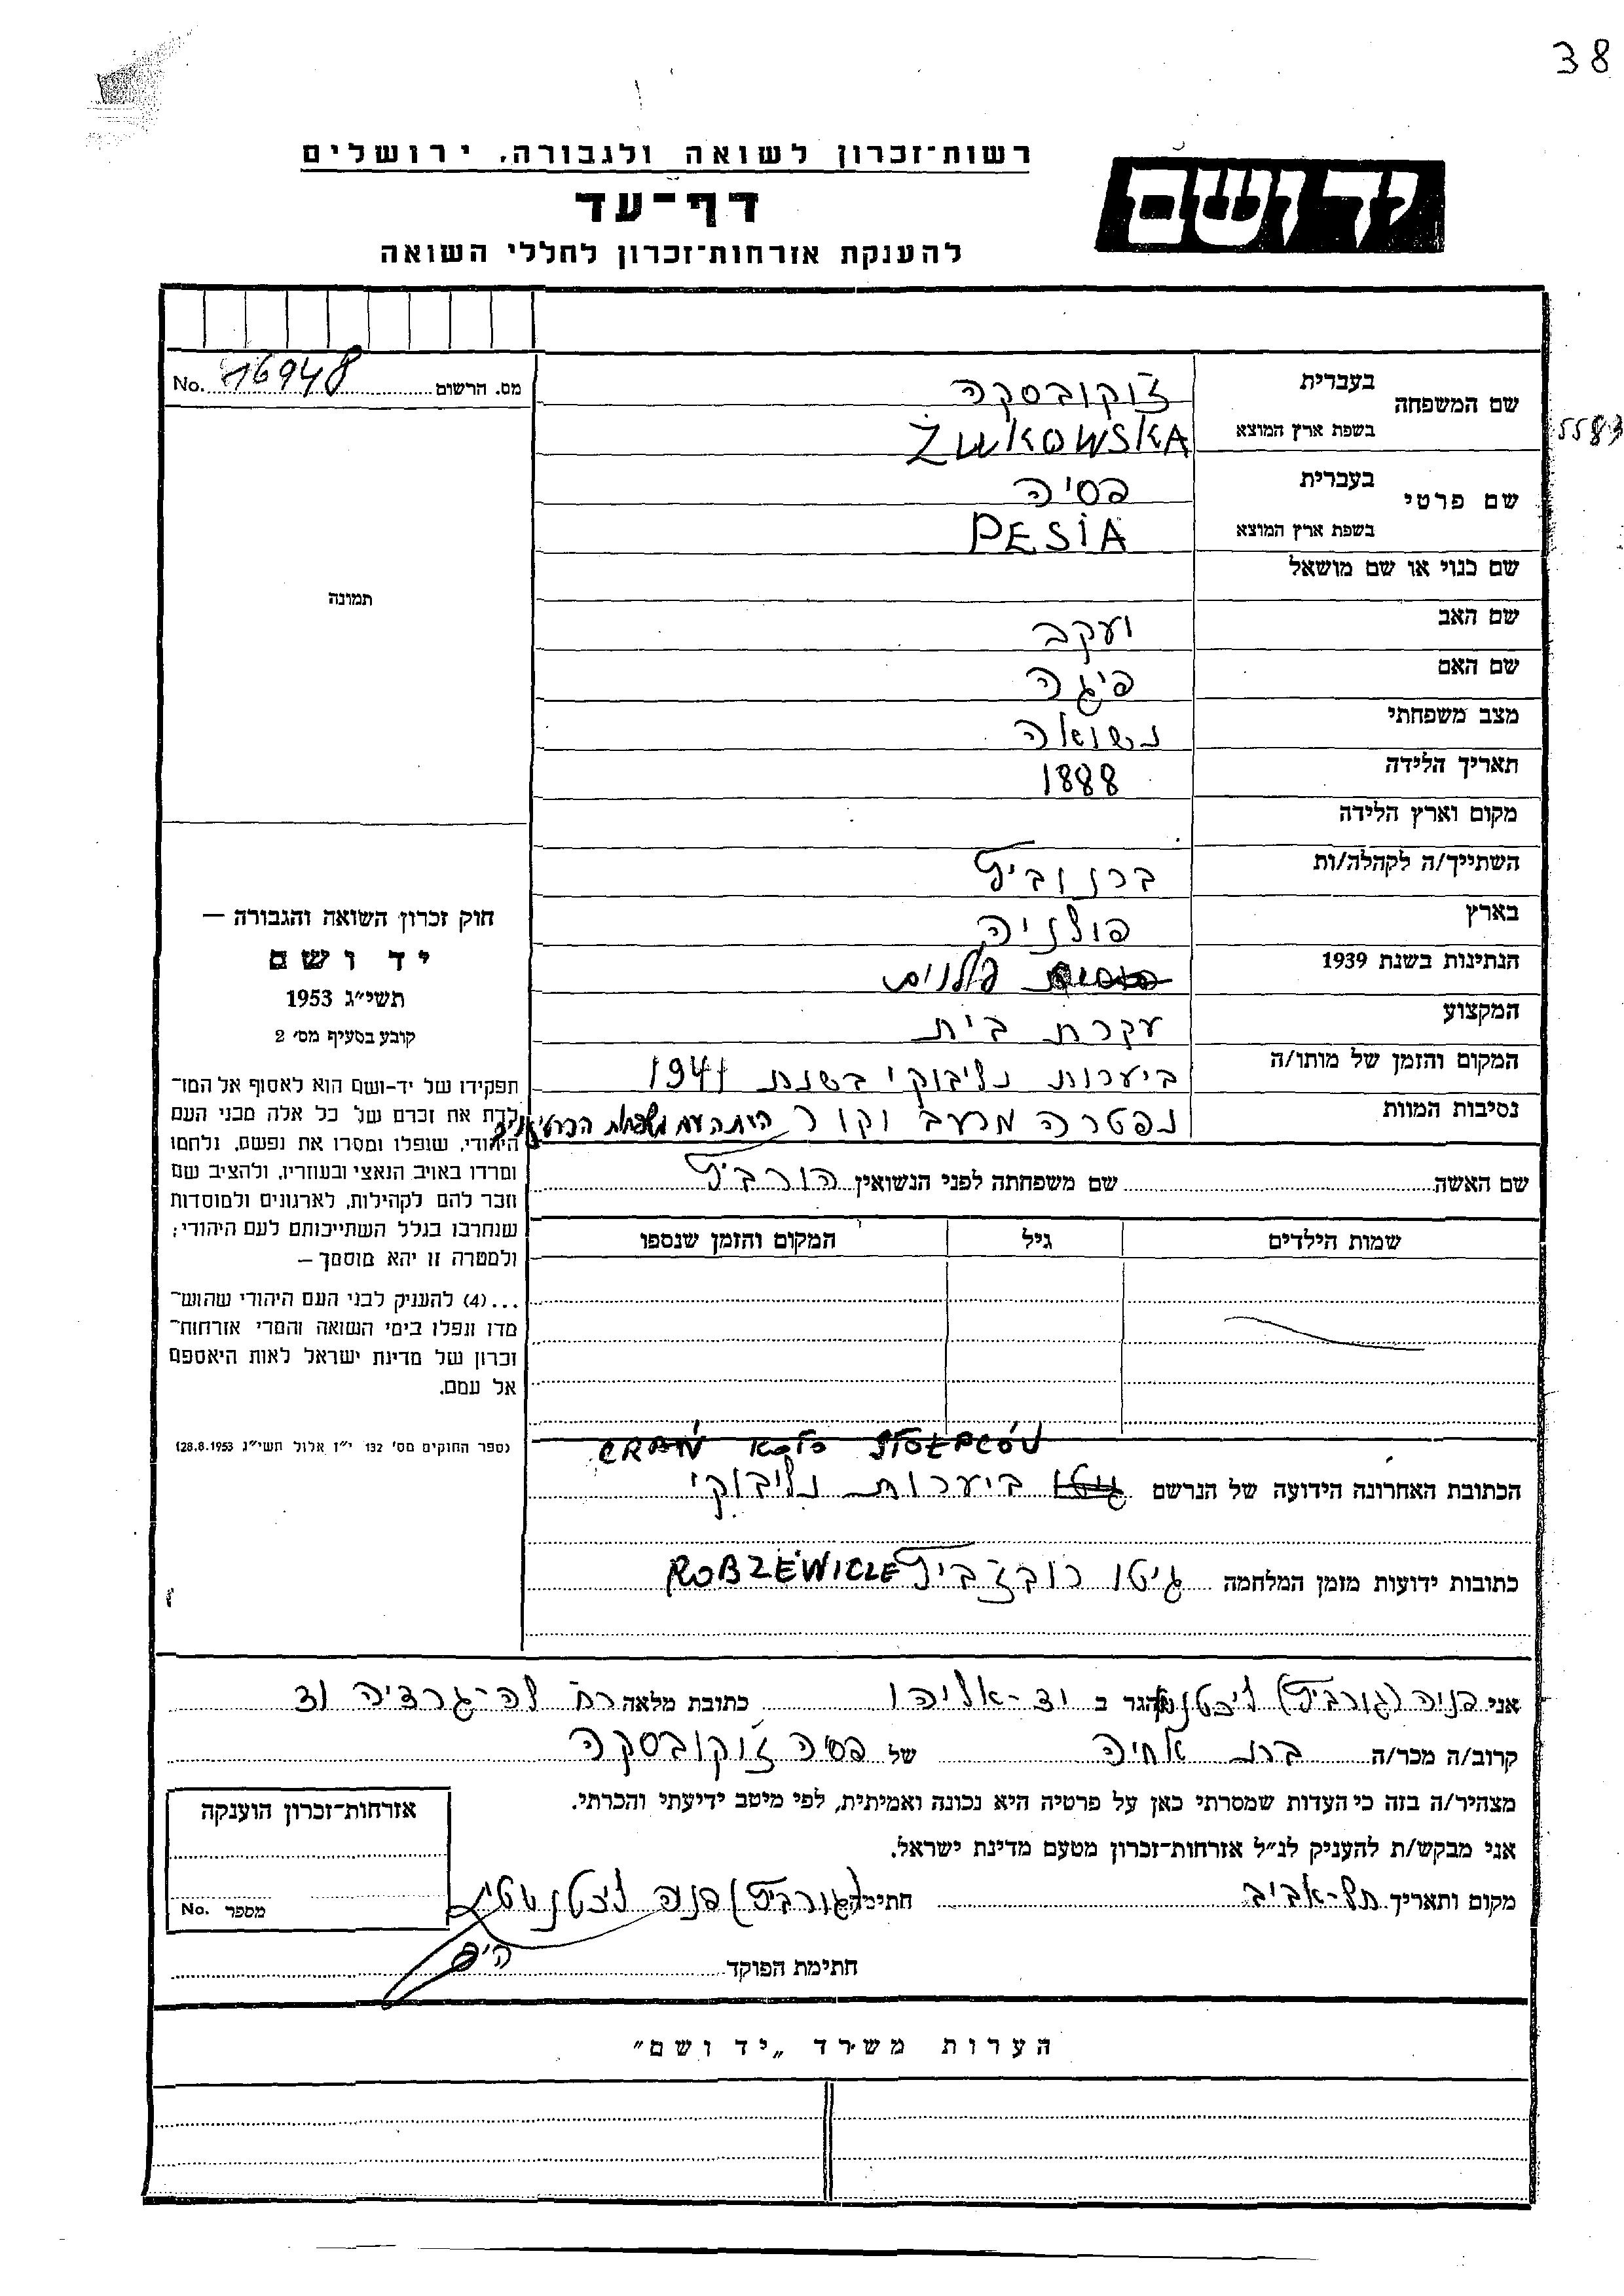 38
רשות־זכרון לשואה ולגבורה, ירושלים
יד ושם
דף־עד
להענקת אזרחות־זכרון לחללי השואה
No. 16948 מס. הרשום
שם המשפחה
בעברית זוקובסקה
בשפת ארץ המוצא ŻUKOWSKA
5583
שם פרטי
בעברית פסיה
בשפת ארץ המוצא PESIA
שם כנוי או שם מושאל
תמונה
שם האב יעקב
שם האם פיגה
מצב משפחתי נשואה
תאריך הלידה 1888
מקום וארץ הלידה
השתייך/ה לקהלה/ות ברנוביץ
בארץ פולניה
הנתינות בשנת 1939 פולנית
המקצוע עקרת בית
המקום והזמן של מותו/ה ביערות נליבוקי בשנת 1941
נסיבות המוות נפטרה מרעב וקור היתה עם משפחות הפרטיזנים
חוק זכרון השואה והגבורה –
יד ושם
תשי״ג 1953
קובע בסעיף מס׳ 2
תפקידו של יד-ושם הוא לאסוף אל המו־
לדת את זכרם של כל אלה מבני העם
היהודי, שנפלו ומסרו את נפשם, נלחמו
ומרדו באויב הנאצי ובעוזריו, ולהציב שם
וזכר להם לקהילות, לארגונים ולמוסדות
שנחרבו בגלל השתייכותם לעם היהודי;
ולמטרה זו יהא מוסמך –
...(4) להעניק לבני העם היהודי שהוש־
מדו ונפלו בימי השואה והמרי אזרחות־
זכרון של מדינת ישראל לאות היאספם
אל עמם.
(ספר החוקים מס׳ 132 י״ז אלול תשי״ג 28.8.1953)
שם האשה שם משפחתה לפני הנשואין הורביץ
שמות הילדים גיל המקום והזמן שנספו
KOŁO STOŁPCÓW
הכתובת האחרונה הידועה של הנרשם ביערות נליבוקי
כתובות ידועות מזמן המלחמה גיטו רובז׳ביץ ROBZEWICZE
אני פניה (גורביץ) הגר ב יד-אליהו כתובת מלאה רח לה-גרדיה
קרוב/ה מכר/ה בת אחיה של פסיה זוקובסקה
מצהיר/ה בזה כי העדות שמסרתי כאן על פרטיה היא נכונה ואמיתית, לפי מיטב ידיעתי והכרתי.
אני מבקש/ת להעניק לנ״ל אזרחות־זכרון מטעם מדינת ישראל.
מקום ותאריך תל-אביב חתימה (גורביץ) פניה
חתימת הפוקד
אזרחות־זכרון הוענקה
No. מספר
הערות משרד „יד ושם״